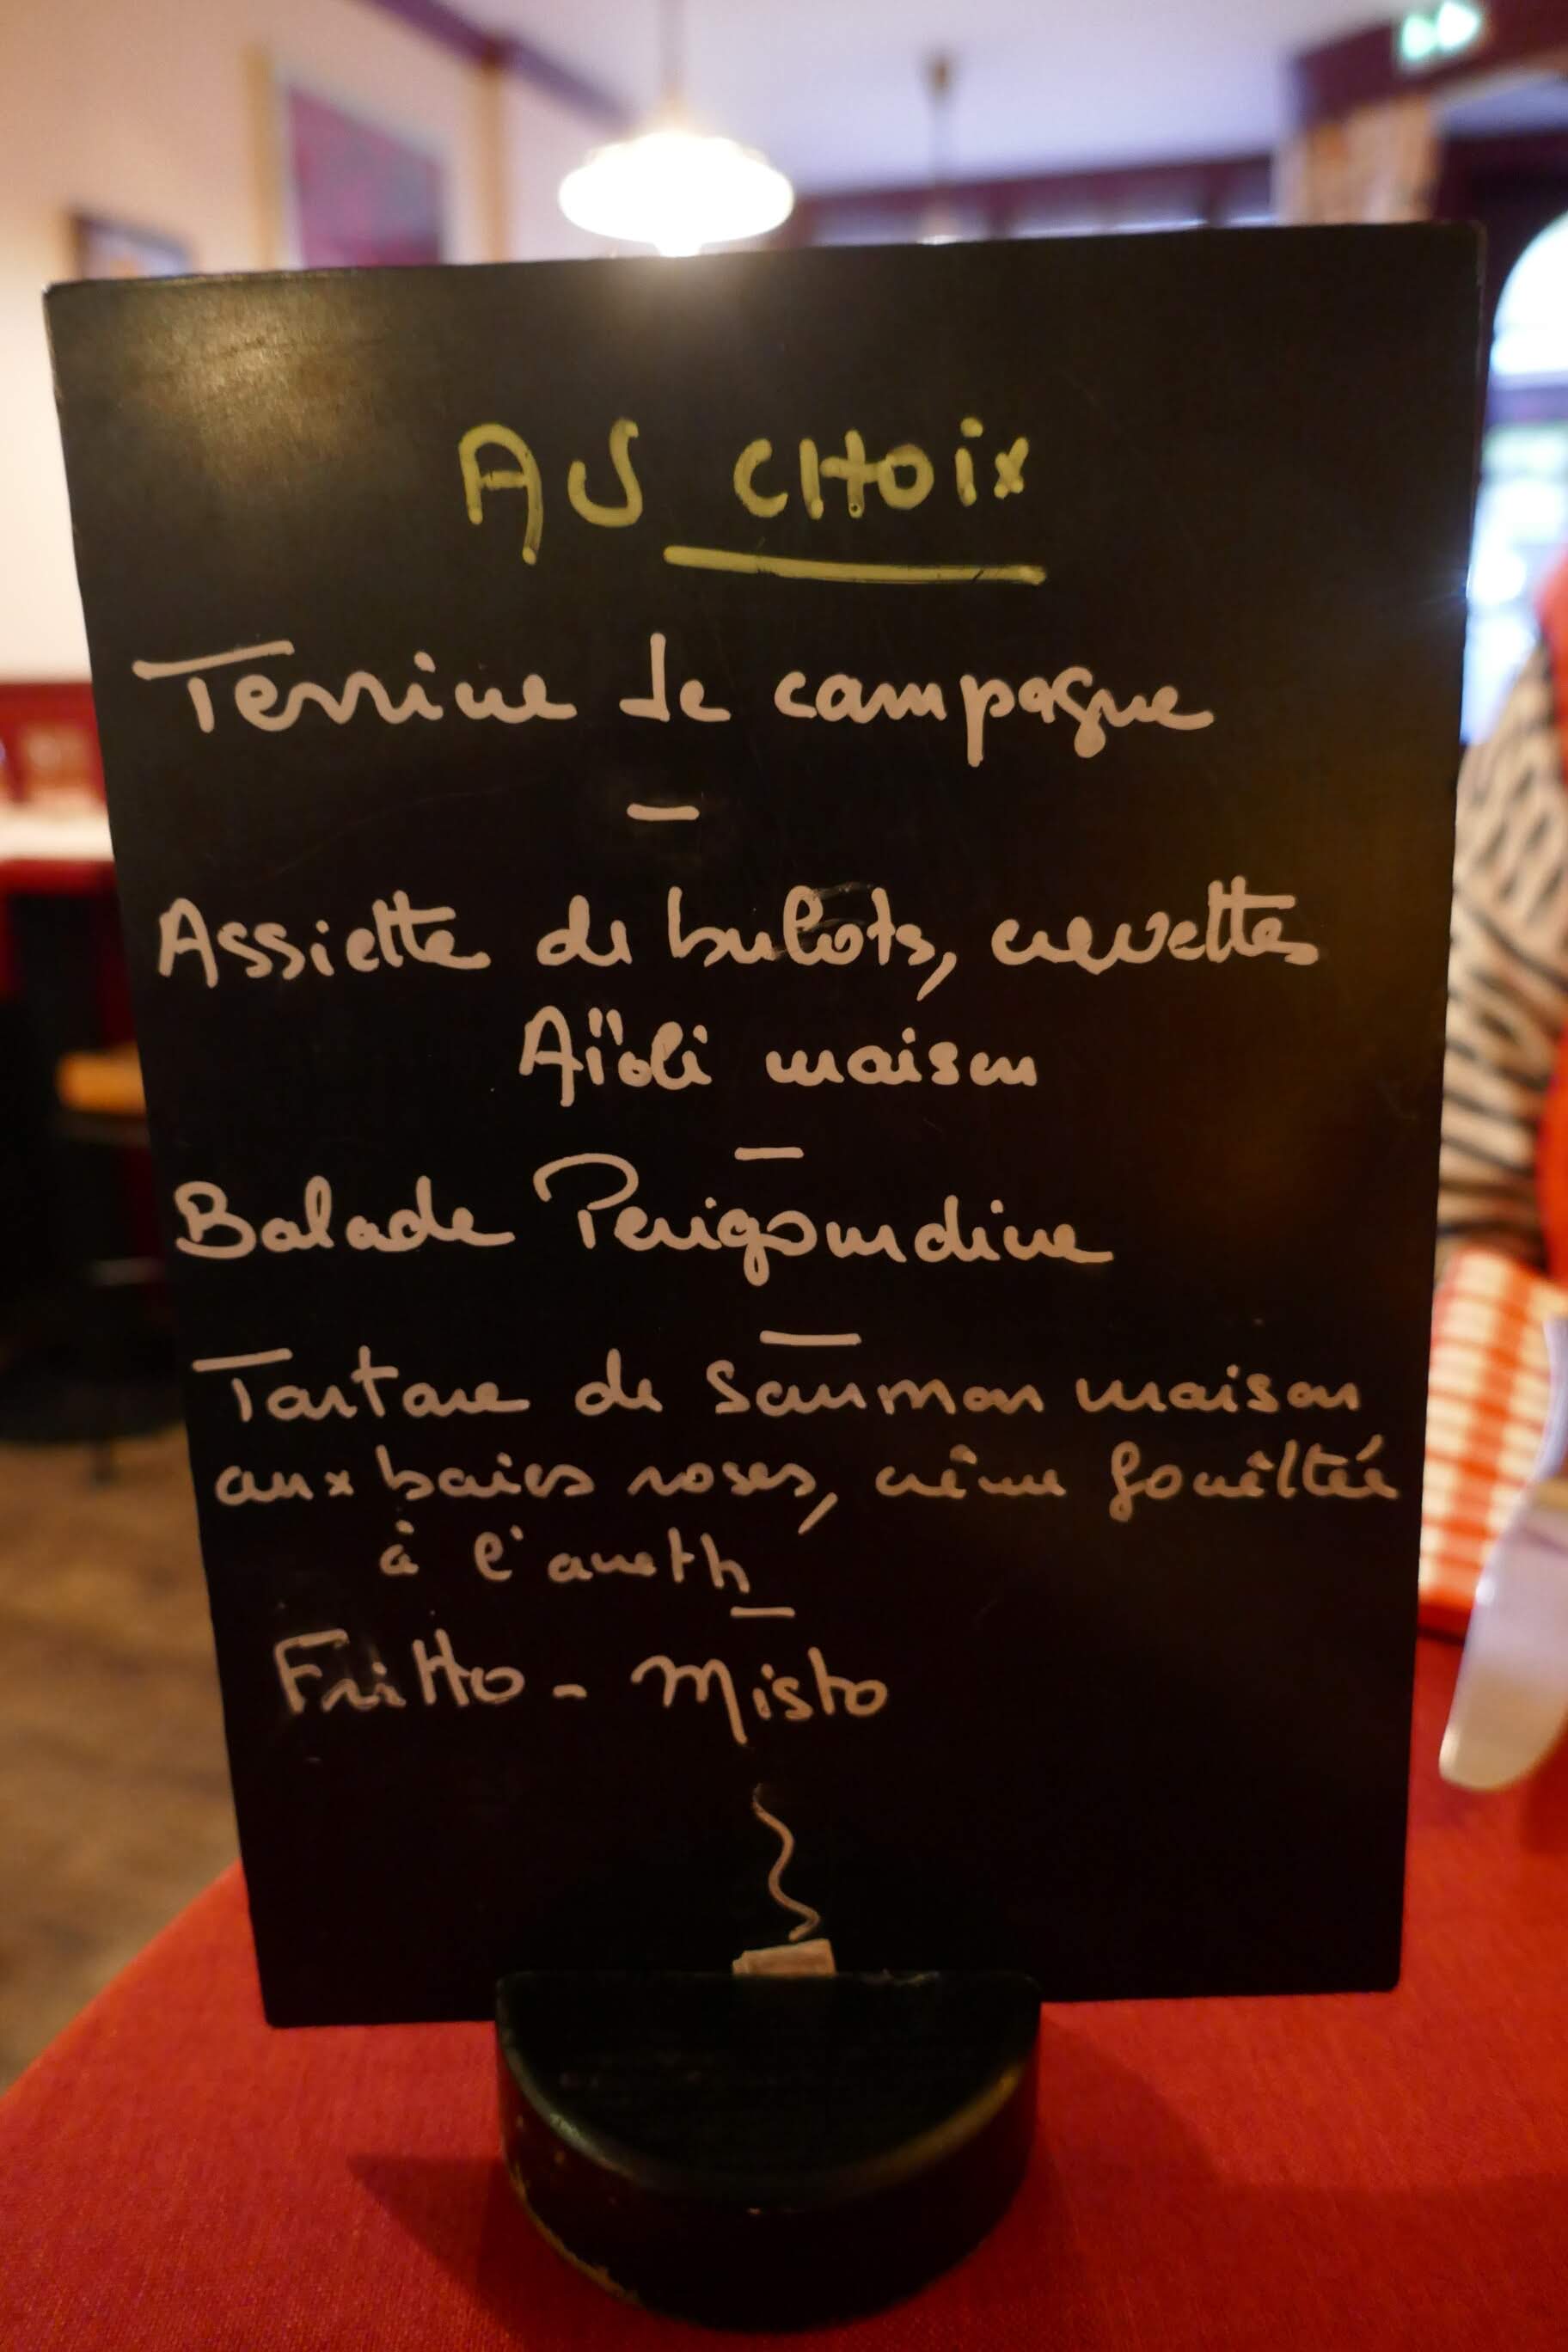 AU CHOIX
Terrine de campagne
–
Assiette de bulots, crevettes
Aïoli maison
–
Balade Perigourdine
–
Tartare de saumon maison
aux baies roses, crême fouêttée
à l'aneth
–
Fritto - Misto